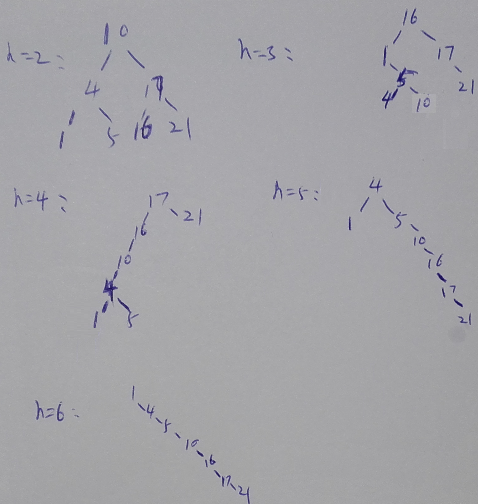 h=2:
10
4 17
1 5 16 21
h=3:
16
1 17
5 21
4 10
h=4:
17
16 21
10
4
1 5
h=5:
4
1 5
10
16
17
21
h=6:
1
4
5
10
16
17
21